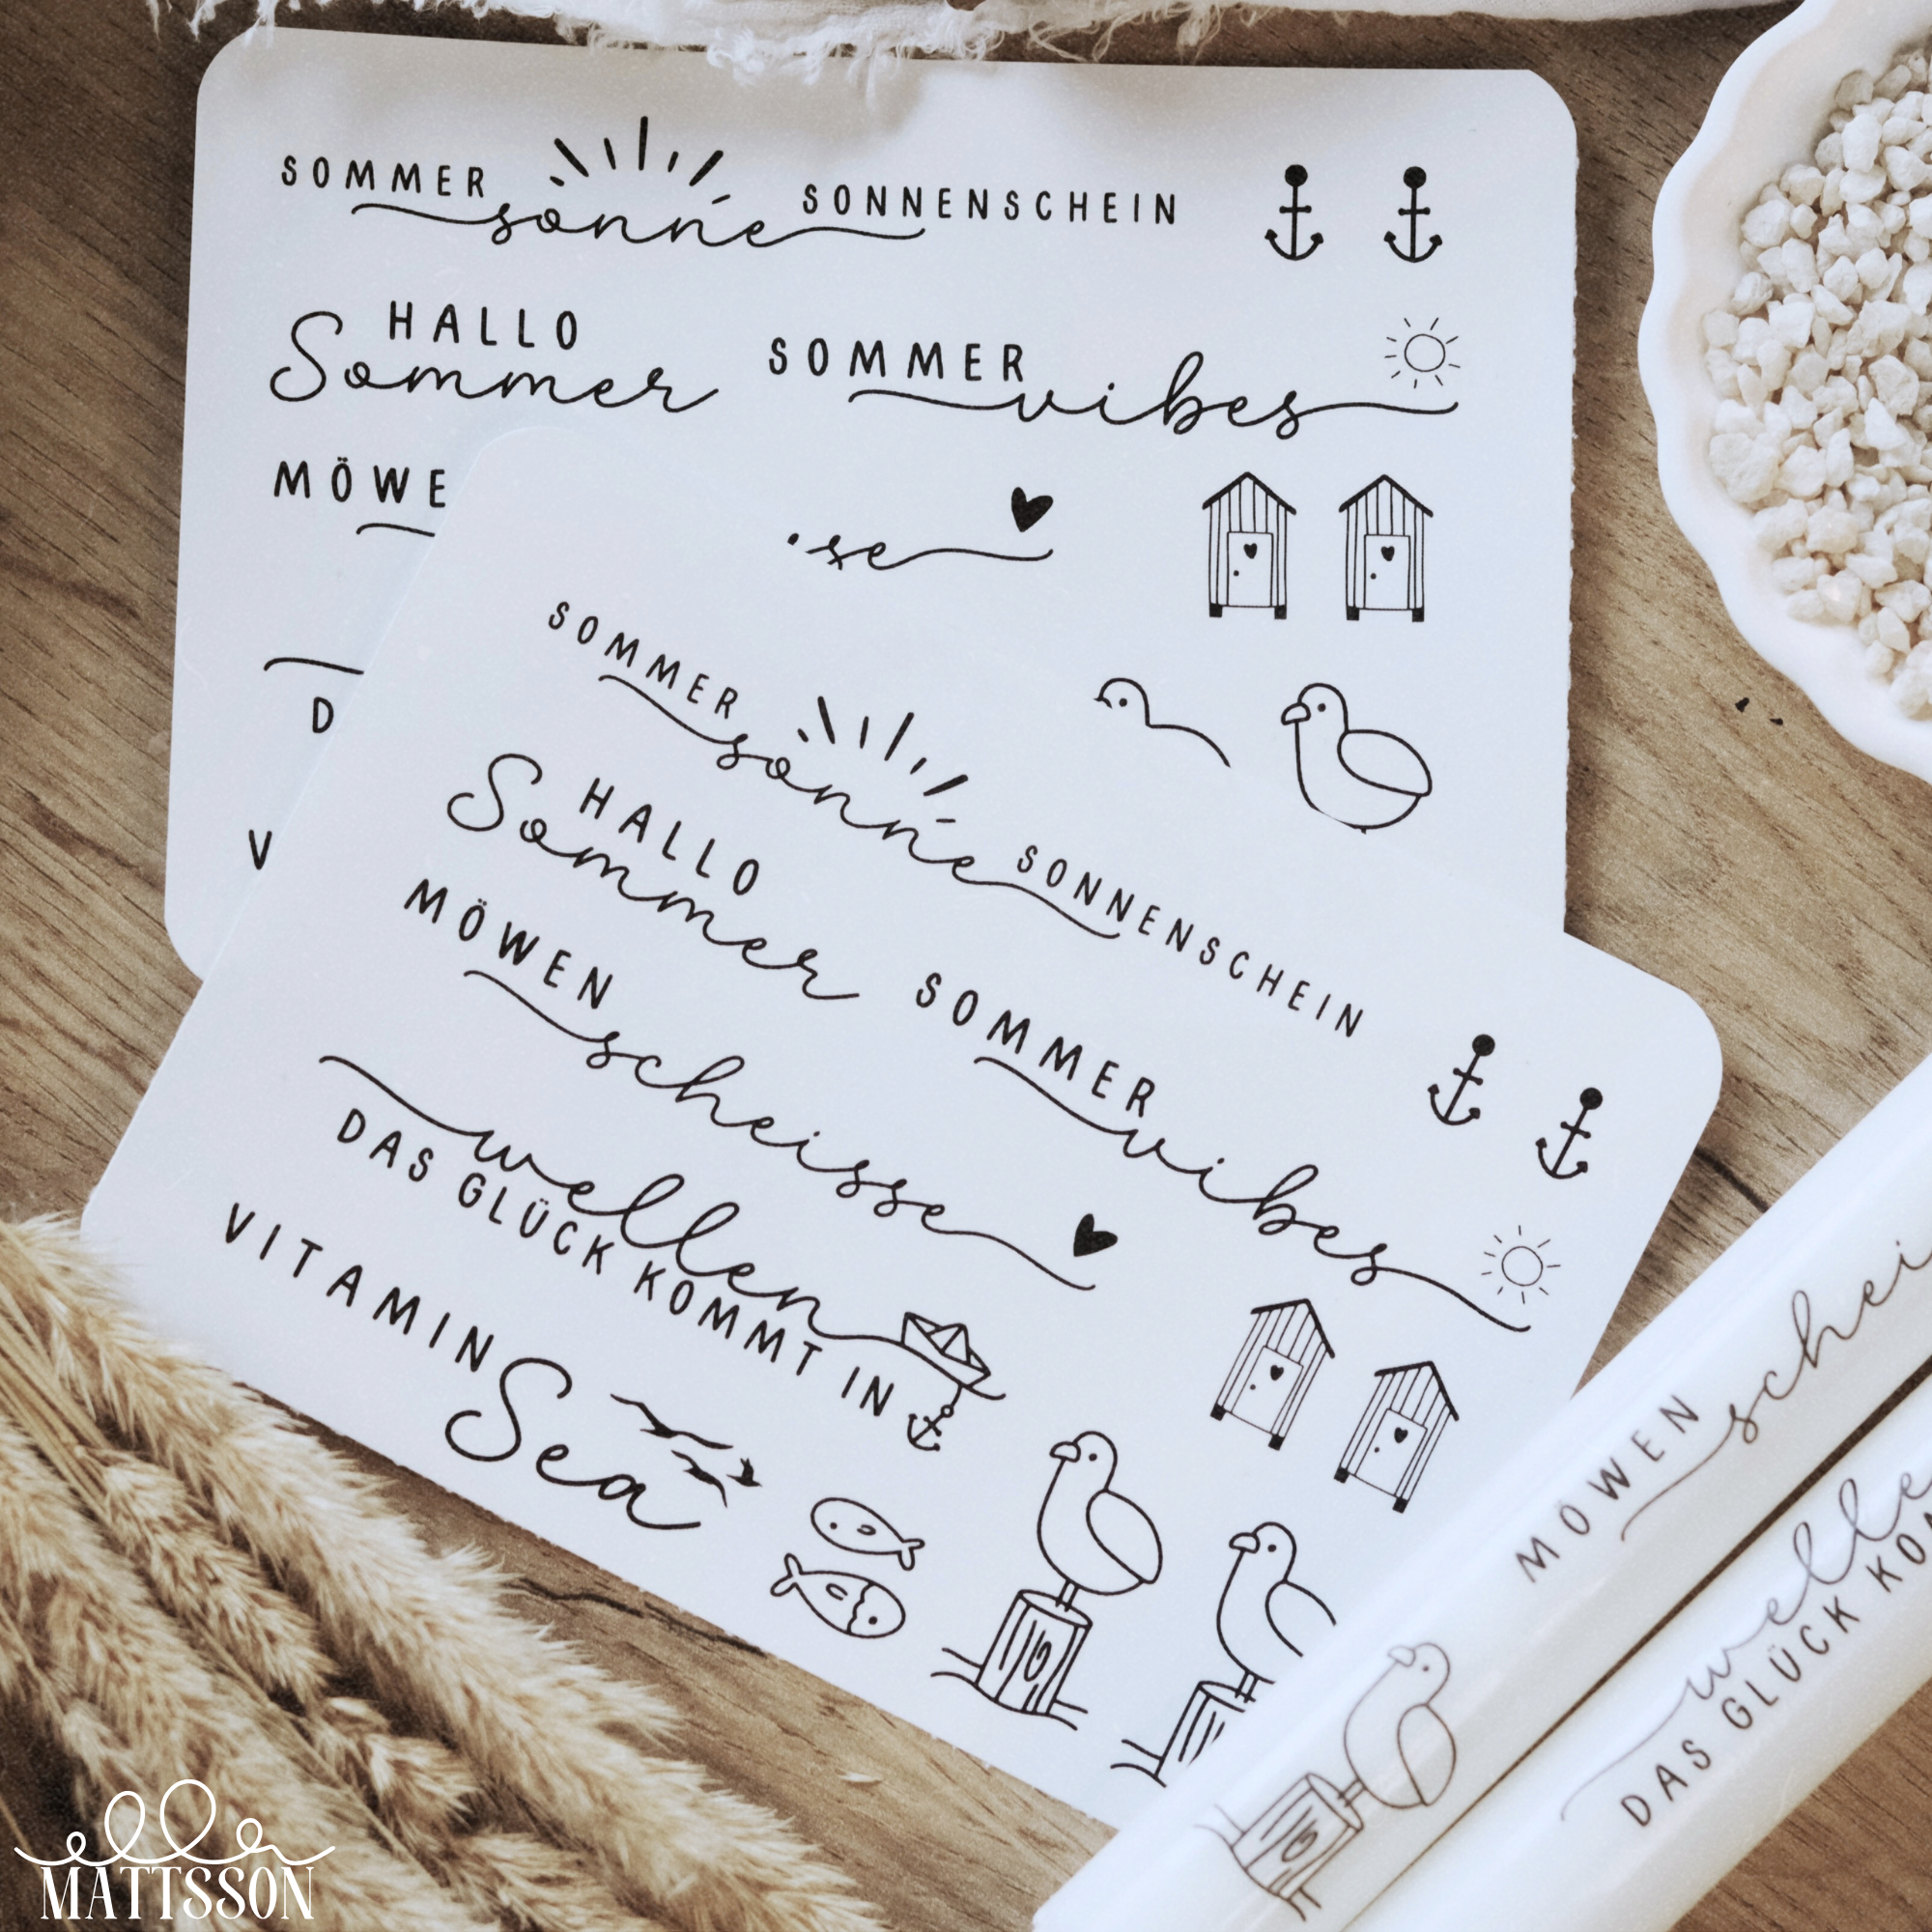 SOMMER sonne SONNENSCHEIN
HALLO
Sommer
SOMMER vibes
MÖWE
se
D
V
SOMMER sonne SONNENSCHEIN
HALLO
Sommer
SOMMER vibes
MÖWEN scheisse
wellen
DAS GLÜCK KOMMT IN
VITAMIN Sea
MÖWEN schei
welle
DAS GLÜCK KO
elle
MATTSSON